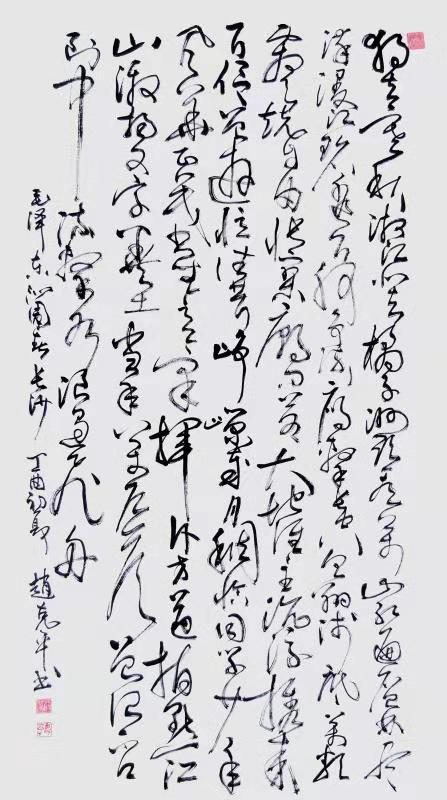 独立寒秋湘江北去橘子洲头看万山红遍层林尽
染漫江碧透百舸争流鹰击长空鱼翔浅底万类
霜天竞自由怅寥廓问苍茫大地谁主沉浮携来
百侣曾游忆往昔峥嵘岁月稠恰同学少年
风华正茂书生意气揮斥方遒指点江
山激扬文字粪土当年万户侯曾记否
到中流击水浪遏飞舟
毛泽东沁園春长沙 丁酉初 趙克平书